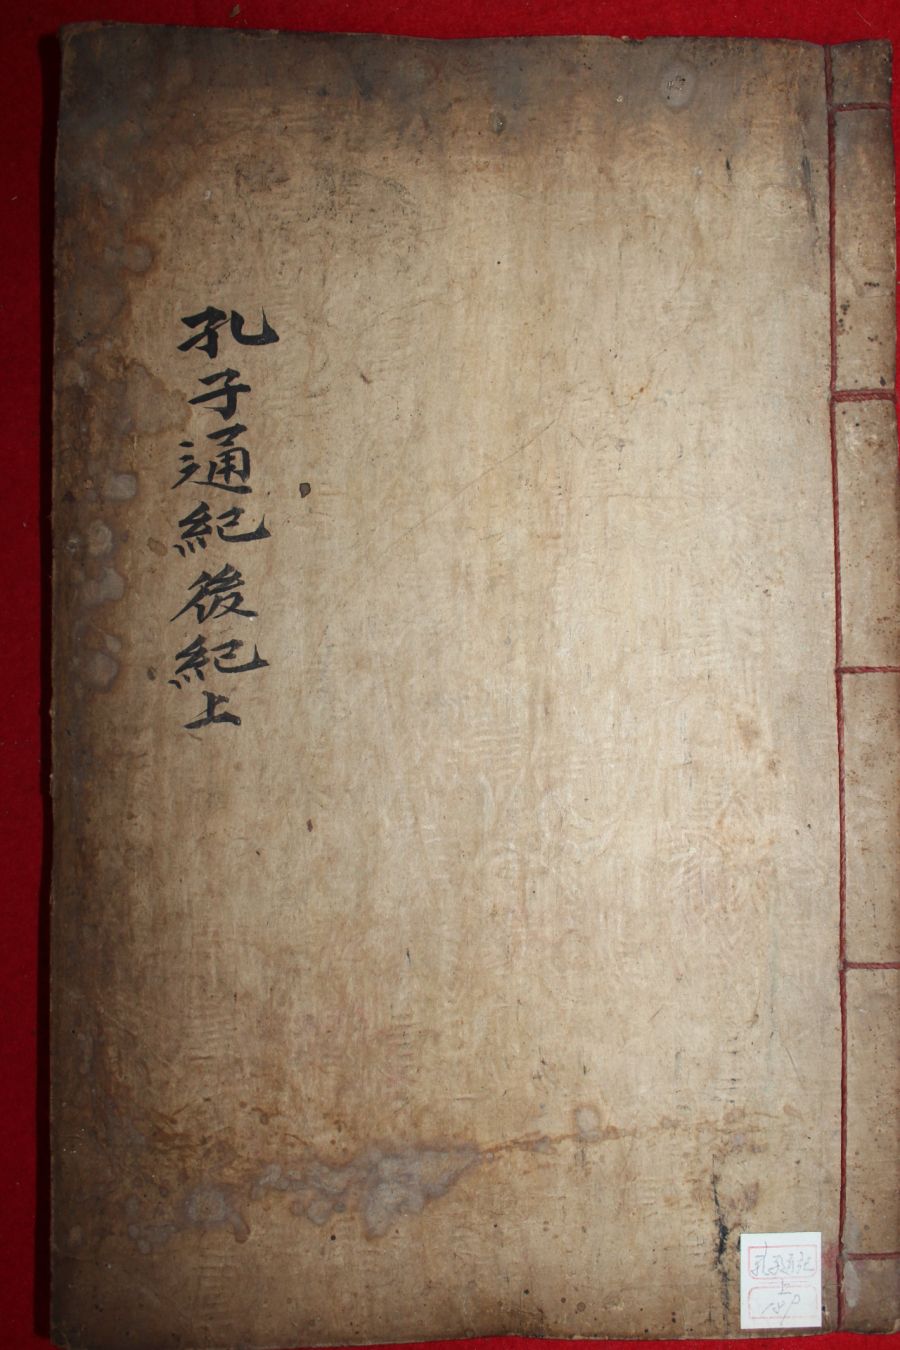 孔子通紀後紀上
孔子通紀
上